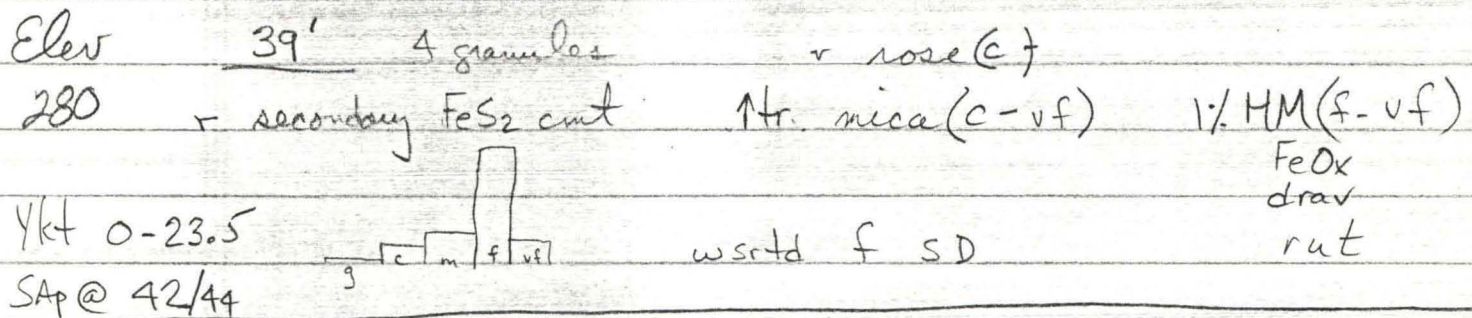 Elev 39' 4 granules r rose (c)
280 r secondary FeS2 cmt ↑tr. mica (c-vf) 1% HM (f-vf)
FeOx
drav
Ykt 0-23.5 g c m f vf wsrtd f SD rut
SAp @ 42/44